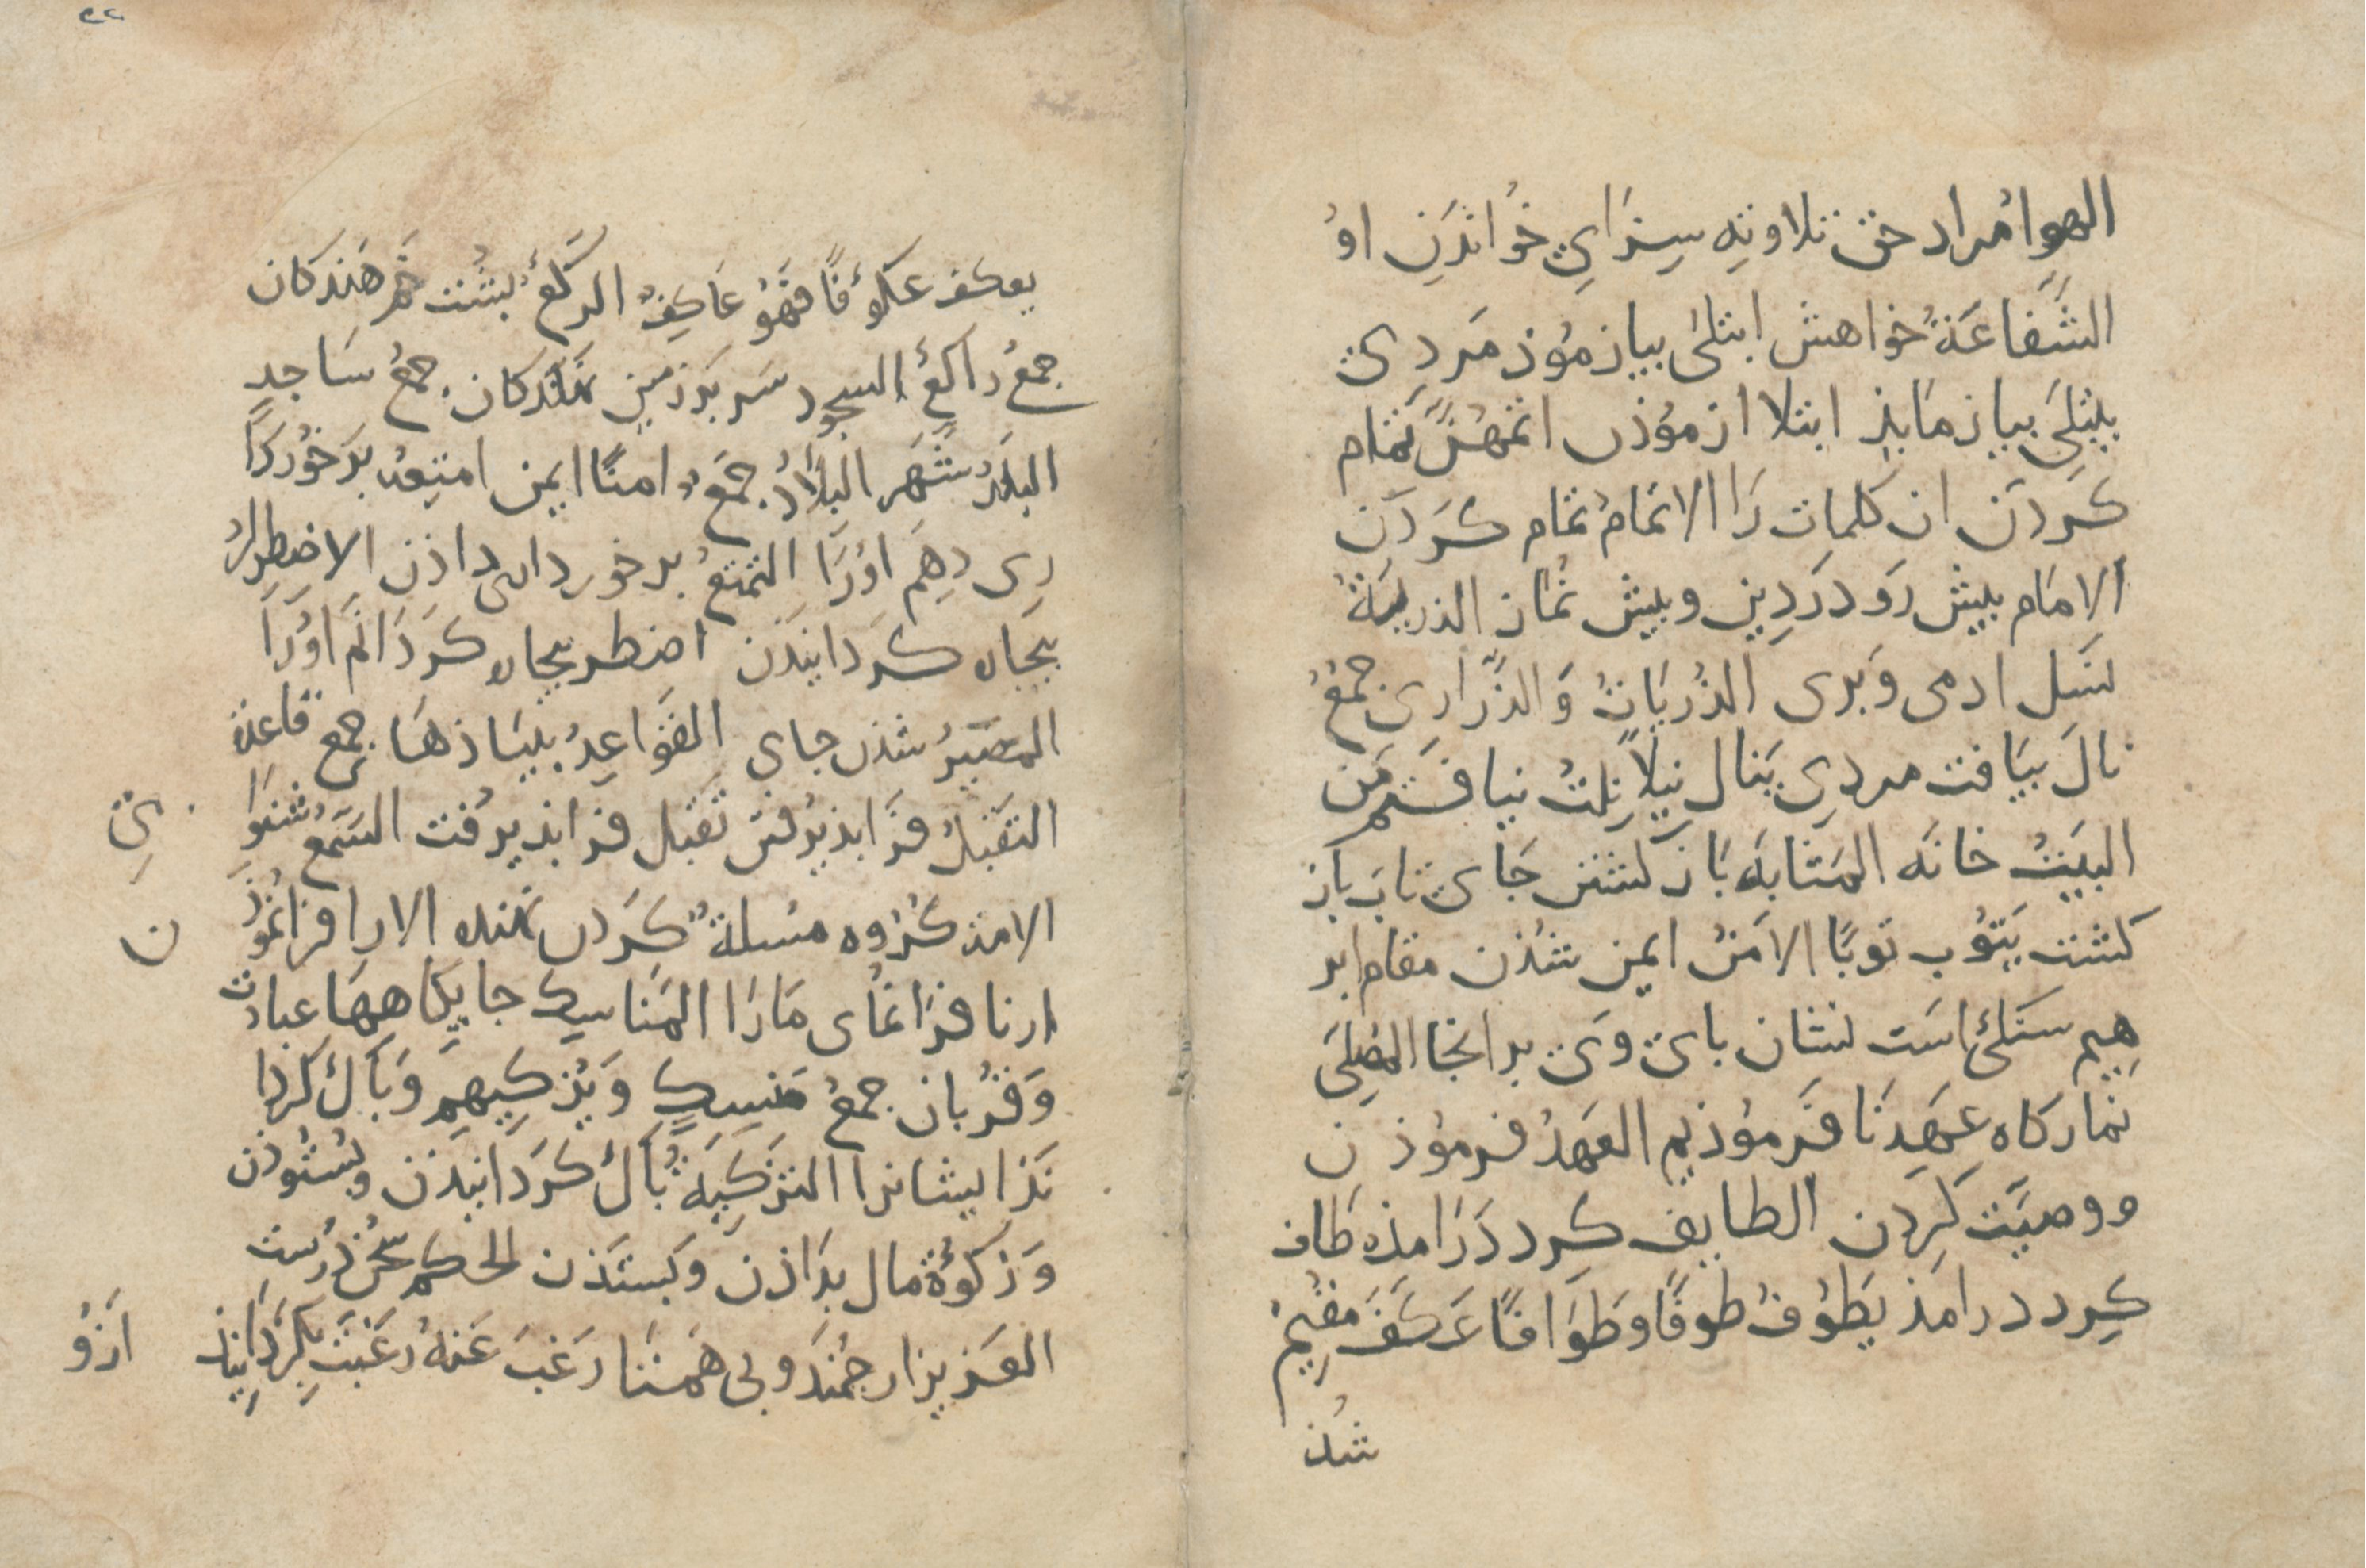 الهوا مُراد حق تلاوته سِزَايِ خُوانْدَنِ اوُ
الشَّفاعَةُ خواهش ابتلىٰ بیازمُوذ مَردیْ
یبتلِیَ بیازمَایذ ابتلا ازمُوذن اتمَّهُنَّ تمَام
کَردَن ان کلمات رَا الاتمَامُ تمَام کَردَن
الامَام بیشْ رَو دَردِین وبیش نمُاز الذریَةُ
نَسل ادمی وَبری الذُریَاتُ وَالذَّرَاری جمعُ
نالَ بیَافت مردِي یَنال نیلاً نِلتُ نیافتم مَن
البَیتُ خانَه المَثابَه بَازکشتن جَایْ ثابَ باز
کشت یَثوُب ثوبًا الامَنُ ایمن شُذن مقام ابر
هِیم سنکیْ است نشان بایْ وَیْ بدانجا المُصلىَ
نمازکاه عَهِدنَا فَرموُذیم العَهدُ فرموُذن
ووصیَت کَردن الطایف کِرد دَرَامذه طَاف
کِرد درامَذ یَطوُفُ طوفًا وطَوَافًا عَکَفَ مقِیمْ
شذ
یعکف عکوُفًا فهَوُ عَاکِفٌ الرکعُ بشُت خَم دَهَندکان
جمعُ راکعُ السجود سَر بَر زمین نهَندکان جمعُ سَاجدٍ
البلَدُ شَهَر البلَادُ جمَعُ امنًا ایمن امتِعُه بَرخوُردَا
رِی دهِمَ اوُرَا التمتعُ برخورداری داذن الاضطِرارُ
بیجاره کَردَانیذَن اضطر بیجاره کَردَانَم اوُرَا
المصَیرُ شذن جاي القوَاعِدُ بنیَاذهَا جمعِ قاعِدَة
التقَبلُ فَرَابذیرُفتن تقَبل فرابذیرفت السَمعُ شنوَا یْ
الامة کُروُه مُسلمةٌ کَردن نهنده الاراء فرانموُذن
ارنا فرَانمُای مَارَا المَناسِک جایکَاههَا عبادت
وَقرُبان جمعُ مَنسِکٍ وَیُزکِیهِم وَبَاکْ کَردا
نَذ ایشانرا التزکِیَةُ بَاکْ کَردَانیذَن وبستوُذن
وَزکوٰةُ مال بدَاذن وَبستذَن الحکم سُخن دُرستِ
العَزیز ارجُمندَ وبی همَتا رَغبَ عَنهُ رَغبَت بکردَانیذ ازوُ